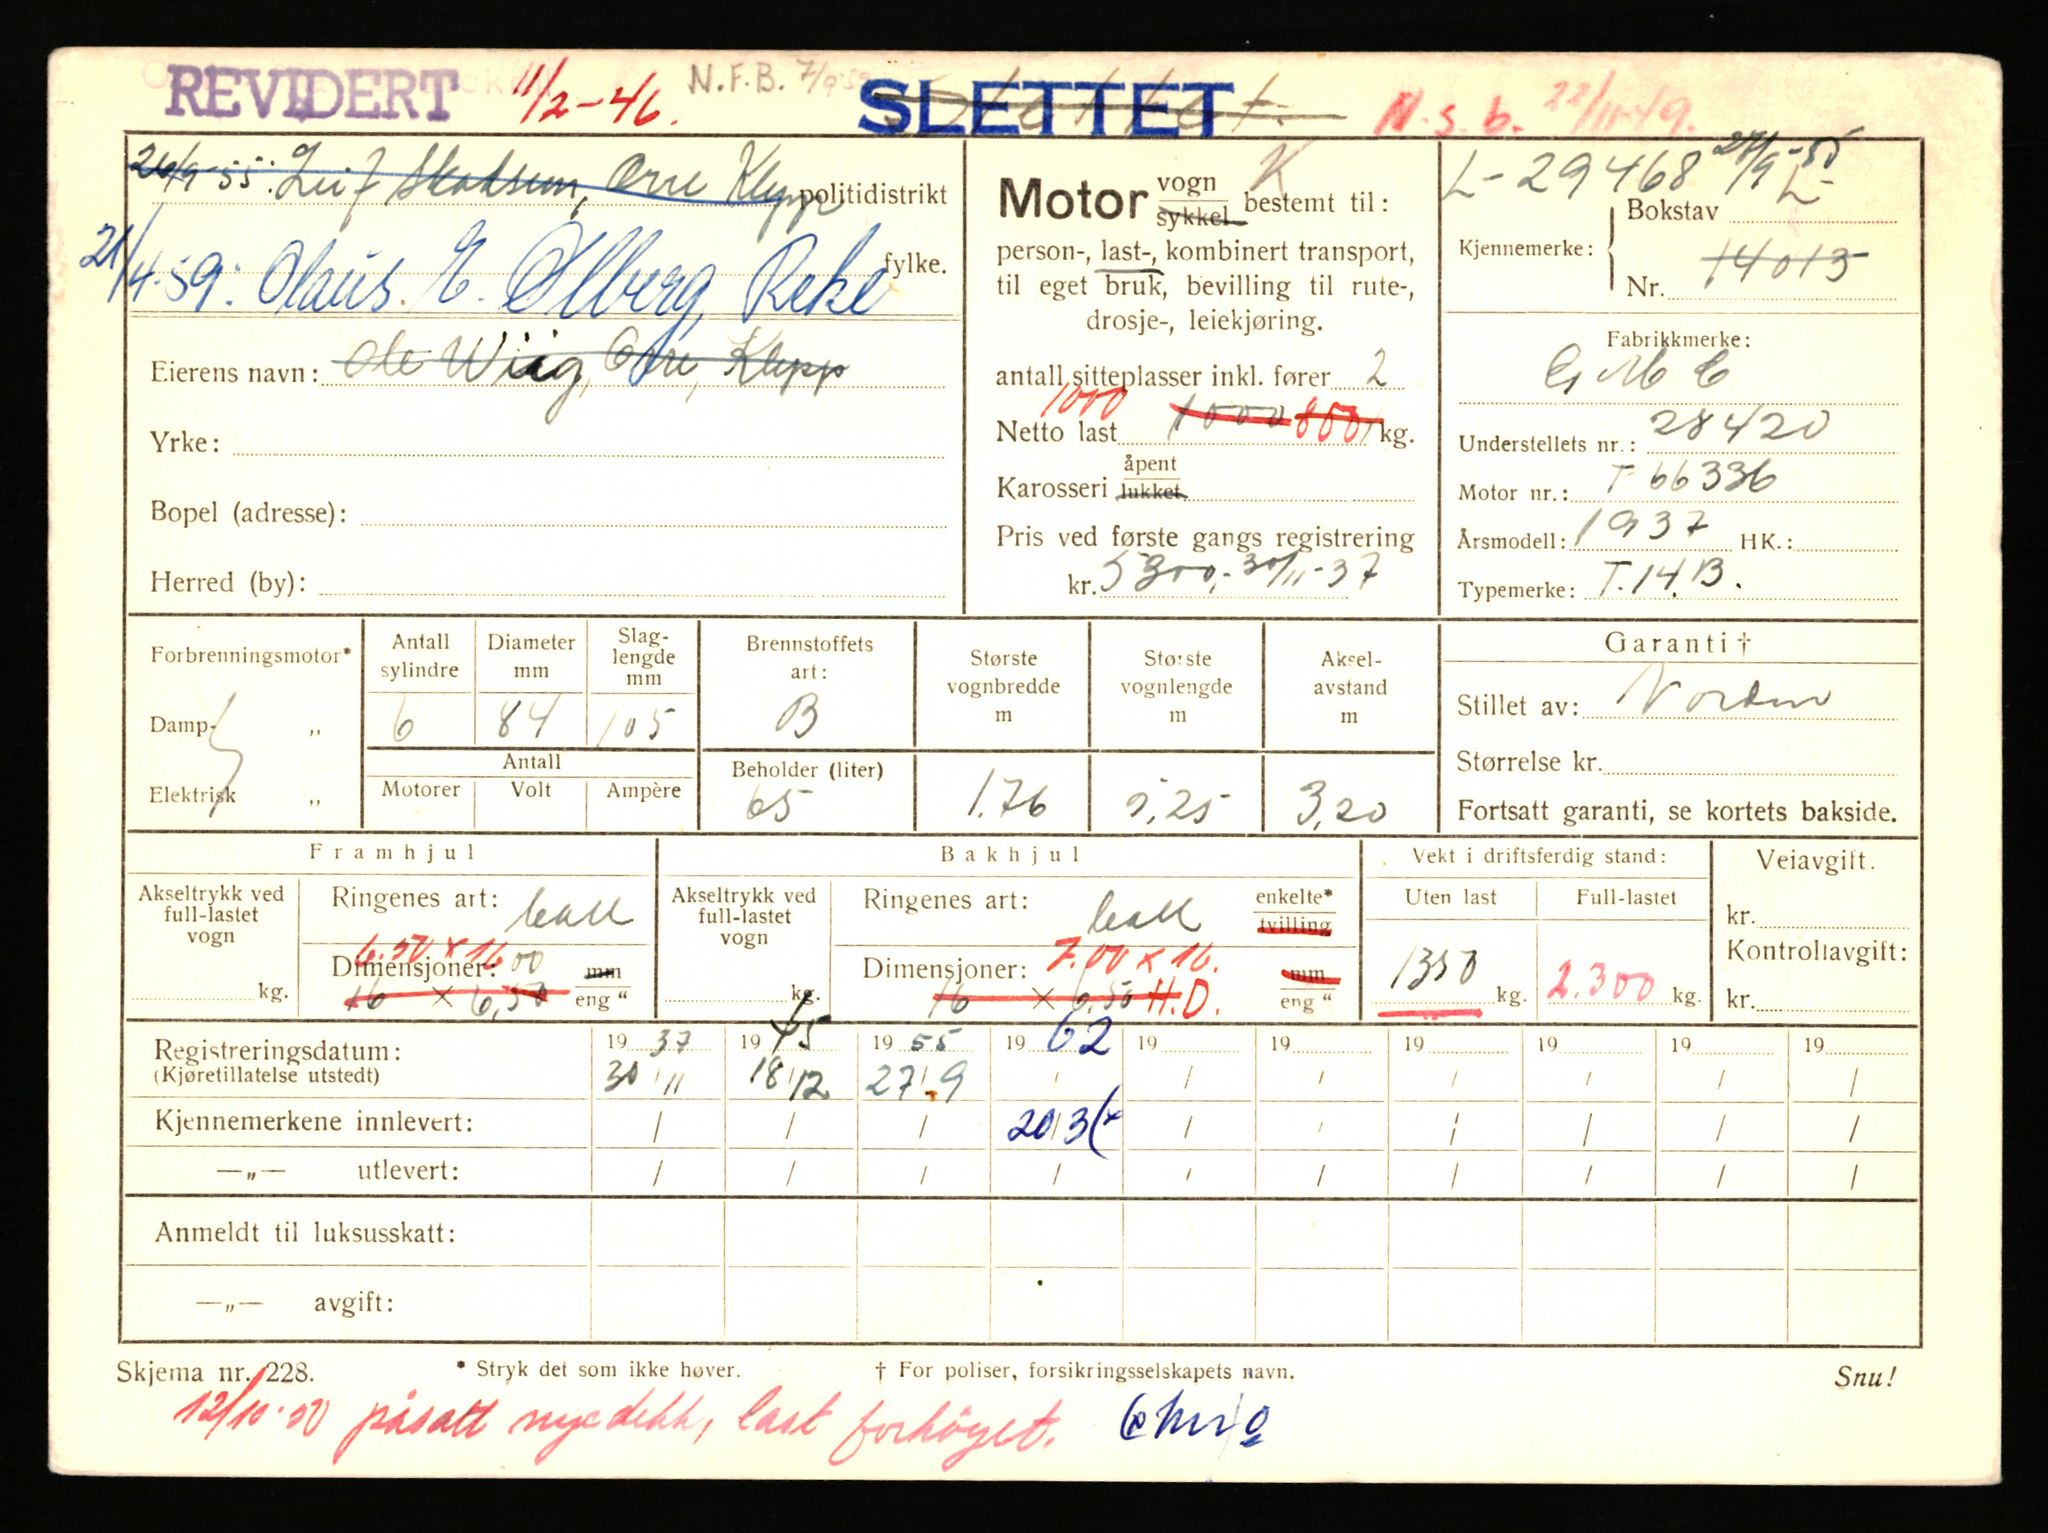 REVIDERT 11/2-46. N.F.B. 7/9 59 SLETTET N.s.b. 22/11-49.
26/9-55: Leif Skadsem, Orre Klepp politidistrikt
21/4-59: Olaus. E. Ølberg, Reke fylke.
Eierens navn: Ole Wiig, Orre, Klepp
Yrke:
Bopel (adresse):
Herred (by):
K
Motor vogn sykkel bestemt til:
person-, last-, kombinert transport,
til eget bruk, bevilling til rute-,
drosje-, leiekjøring.
antall sitteplasser inkl. fører 2
1000
Netto last 1000 850 kg.
Karosseri åpent lukket
Pris ved første gangs registrering
kr. 5300,- 30/11-37
L-29468 27/9-55
Kjennemerke: Bokstav L-
Nr. 14013
Fabrikkmerke:
G M C
Understellets nr.: 28420
Motor nr.: T 66336
Årsmodell: 1937 HK.:
Typemerke: T.14.B.
Forbrenningsmotor*
Damp- „
Elektrisk „
Antall sylindre Diameter mm Slaglengde mm
6 84 105
Antall
Motorer Volt Ampère
Brennstoffets art:
B
Beholder (liter)
65
Største vognbredde m
1.76
Største vognlengde m
5,25
Akselavstand m
3,20
Garanti †
Stillet av: Norden
Størrelse kr.
Fortsatt garanti, se kortets bakside.
Framhjul
Akseltrykk ved
full-lastet
vogn
kg.
Ringenes art: ball
6.50 x 16 00
Dimensjoner: mm
16 x 6,50 eng "
Bakhjul
Akseltrykk ved
full-lastet
vogn
kg.
Ringenes art: ball enkelte* tvilling
7.00 x 16.
Dimensjoner: mm
16 x 6,50 H.D. eng "
Vekt i driftsferdig stand:
Uten last Full-lastet
1350 kg. 2.300 kg.
Veiavgift.
kr.
Kontrollavgift:
kr.
Registreringsdatum: 19 37 19 45 19 55 19 62 19 19 19 19 19 19
(Kjøretillatelse utstedt) 30/11 18/12 27/9 / / / / / / /
Kjennemerkene innlevert: / / / 20/3 / / / / / /
—„— utlevert: / / / / / / / / / /
Anmeldt til luksusskatt:
—„— avgift:
Skjema nr. 228. * Stryk det som ikke høver. † For poliser, forsikringsselskapets navn. Snu!
12/10-50 påsatt nye dekk, last forhöyet.